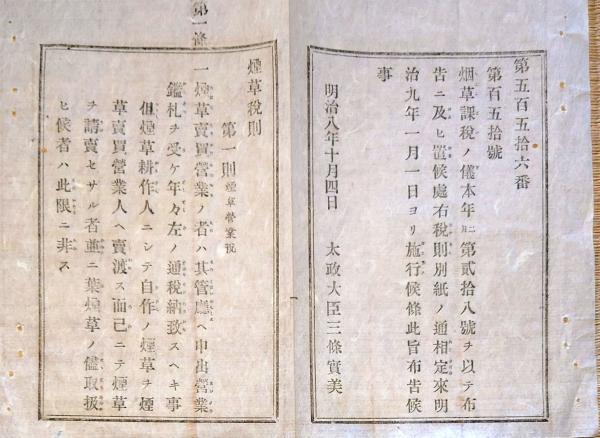 第五百五拾六番
第百五拾號
烟草課税ノ儀本年二月第貳拾八號ヲ以テ布
告ニ及ヒ置候處右税則別紙ノ通相定來明
治九年一月一日ヨリ施行候條此旨布告候
事
明治八年十月四日　太政大臣三條實美
煙草税則
第一則 煙草營業税
第一條 一煙草賣買營業ノ者ハ其管廳ヘ申出營業
鑑札ヲ受ケ年々左ノ通税納致スヘキ事
但煙草耕作人ニシテ自作ノ煙草ヲ煙
草賣買營業人ヘ賣渡ス而已ニテ煙草
ヲ請賣セサル者並ニ葉煙草ノ儘取扱
ヒ候者ハ此限ニ非ス